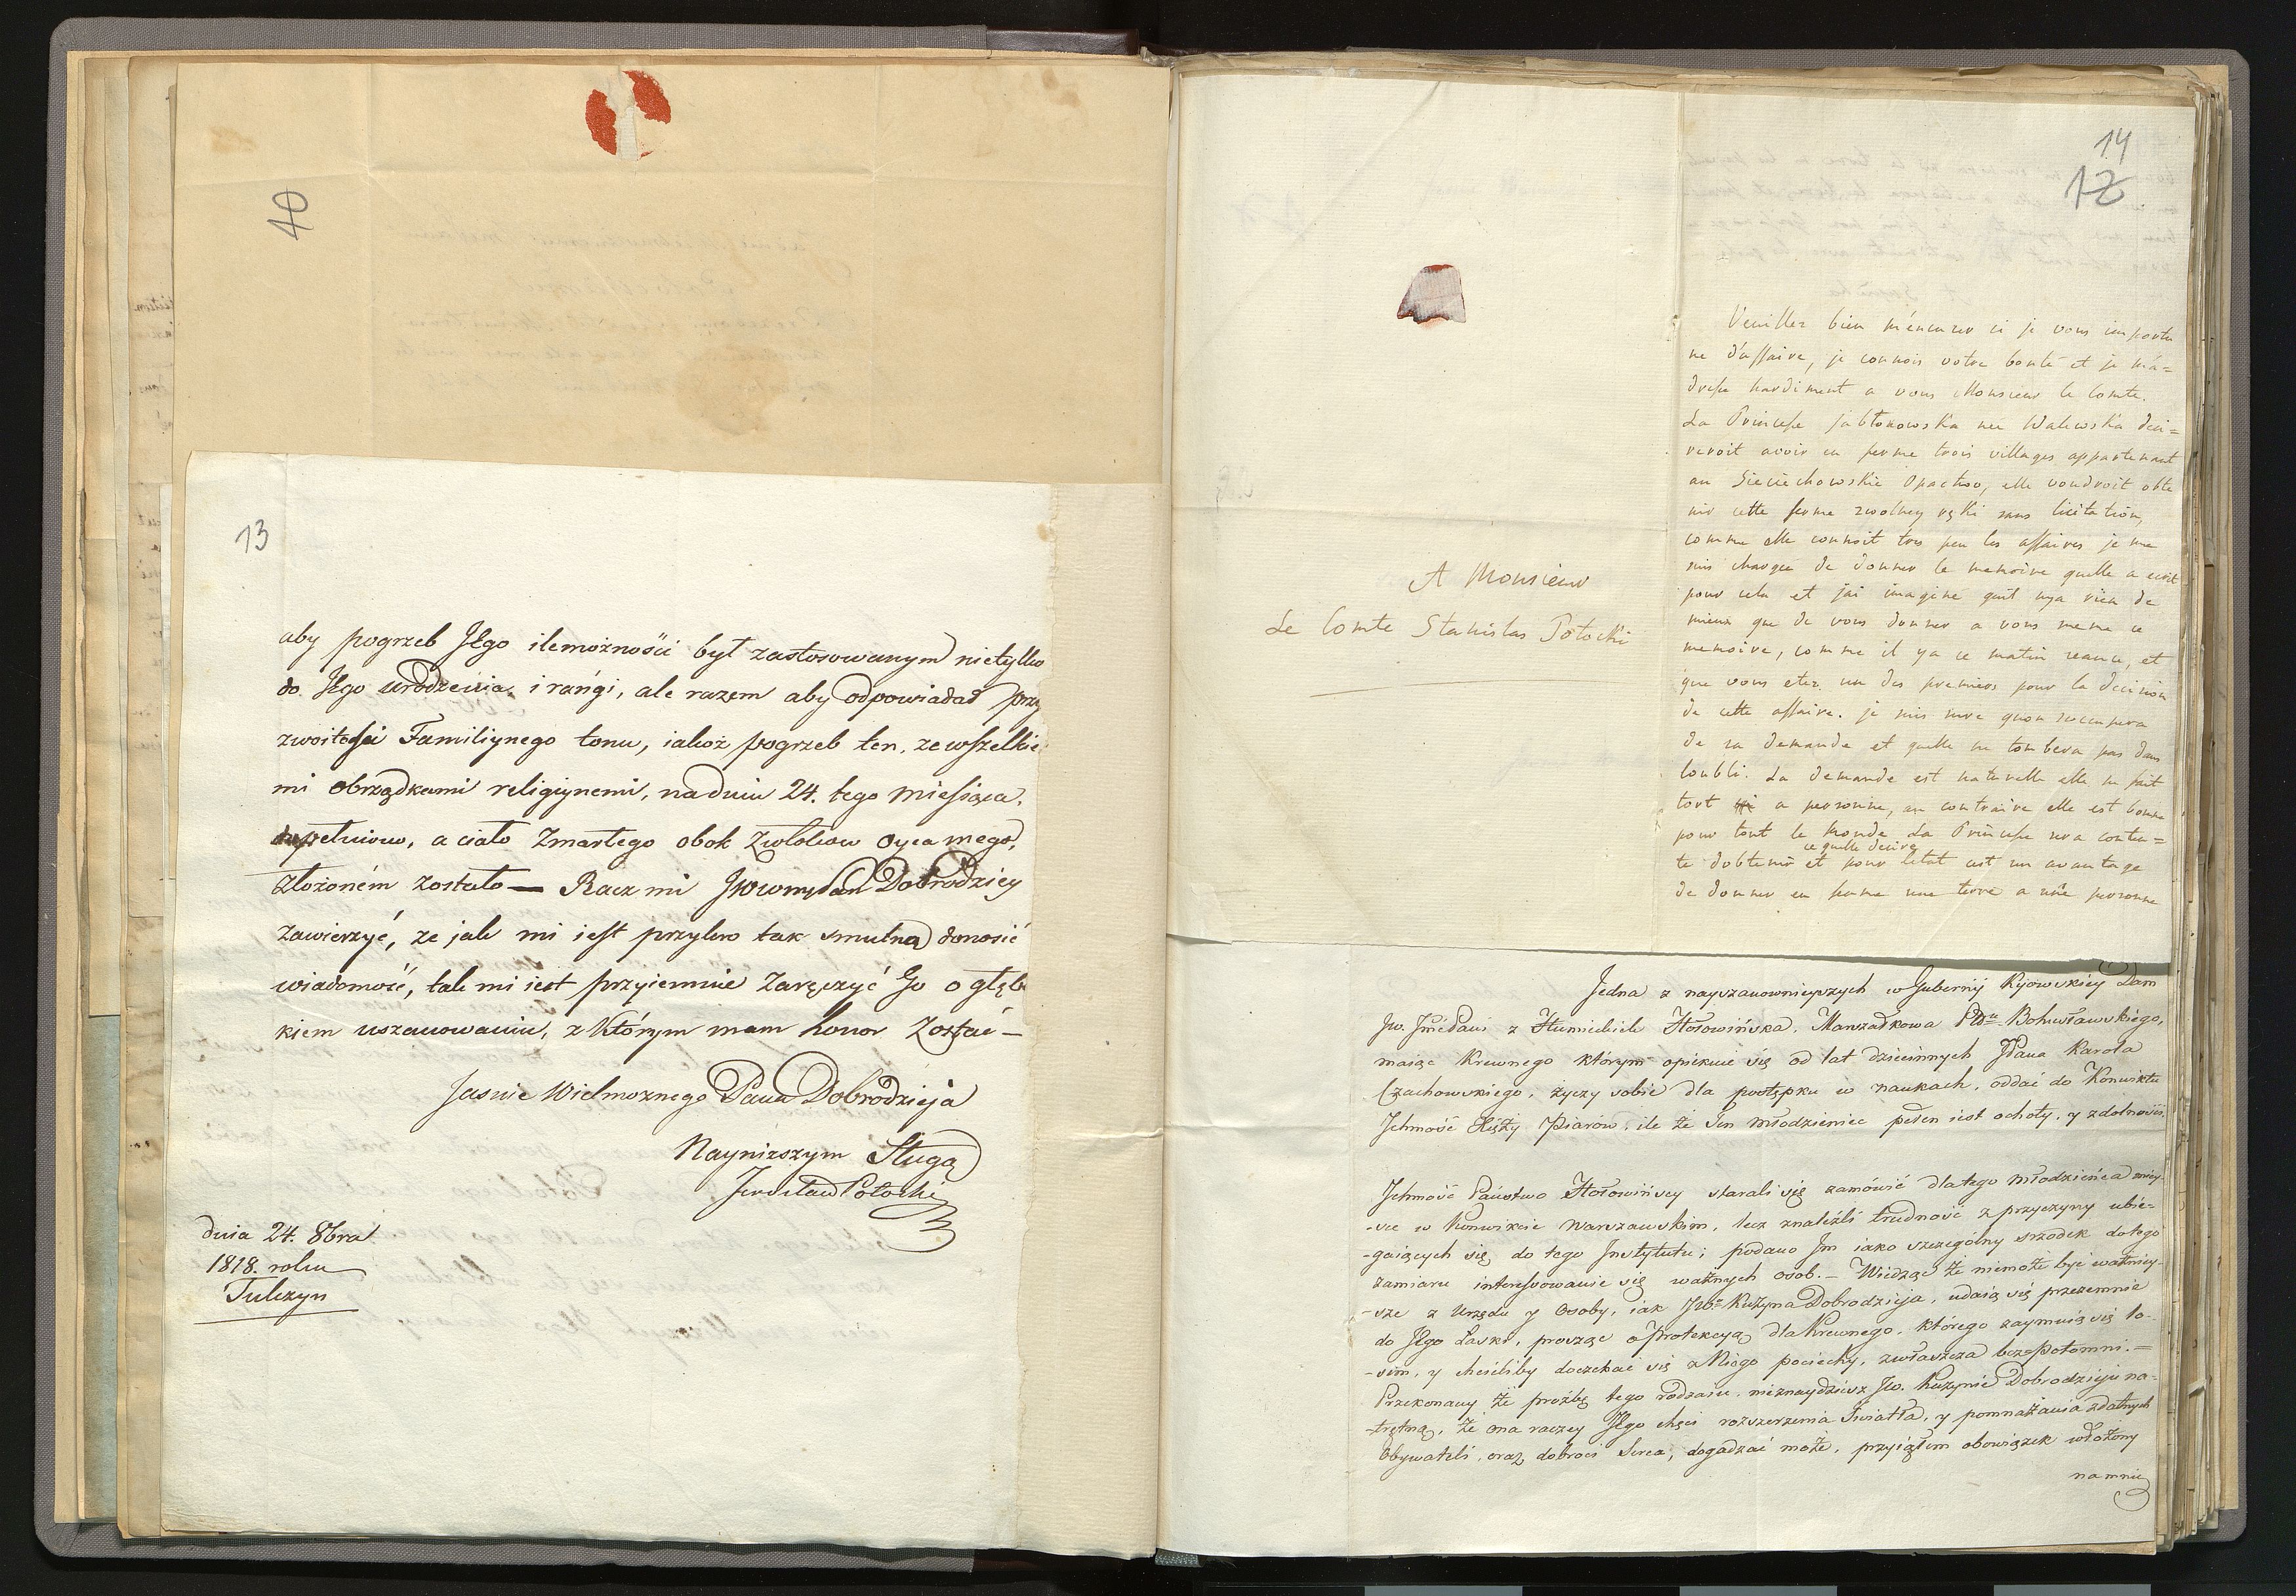 40
13
aby pogrzeb JEgo ilemożności był zastosowanym nietylko
do JEgo urodzenia, i rangi, ale razem aby odpowiadał przy
zwoitości Familiynego tonu, iakoż pogrzeb ten, ze wszelkie
mi obrządkami religiynemi, na dniu 24. tego Miesiąca,
dopełniono, a ciało Zmarłego obok Zwłokow Oyca mego,
złożoném zostało — Racz mi JWWmPan Dobrodziey
Zawierzyć, że jak mi jest przykro tak smutną donosić
wiadomość, tak mi iest przyiemnie Zaręczyć Go o głębo
kiem uszanowaniu, z Którym mam honor Zostać —
Jasnie Wielmoznego Pana Dobrodzieja
Nayniższym Sługą
Jarosław Potocki
dnia 24. 8bra
1818. roku
Tulczyn
14
12
A Monsieur
Le Comte Stanislas Potocki
Veuillez bien m'éncuser si je vous importu
ne d'affaire, je connois votre bonté et je m'a=
dresse hardiment a vous Monsieur le Comte.
La Princesse Jabłonowska nee Walewska desi=
reroit avoir en ferme trois villages appartenant
au Sieciechowskie Opactwo, elle voudroit obte
nir cette ferme zwolney ręki sans licitation,
comme elle connoit tres peu les affaires je me
suis chargée de donner le memoire quelle a ecrit
pour cela et jai imagine quil nya rien de
mieux que de vous donner a vous meme ce
memoire, comme il ya ce matin seance, et
que vous etez un des premiers pour la decision
de cette affaire. je suis sure quon soccupera
de sa demande et quelle ne tombera pas dans
loubli. La demande est naturelle elle ne fait
tort a personne, au contraire elle est bonne
pour tout le monde La Princesse sera conten=
ce quelle desire
te dobtenir et pour letat cest un avantage
de donner en ferme une terre a une personne
Jedna z nayszanownieyszych w Gubernij Kijowskiey Dam
JW. JmćPani z Hołowińska, Marszałkowa Bohusławskiego,
maiąc Krewnego którym opiekuie się od lat dziecinnych JPana Karola
Czachowskiego, życzy sobie dla postępku w naukach, oddać do Konwiktu
Jchmość Xięży Piarów, ile że Ten młodzieniec pełen iest ochoty, y zdolności.
Jchmość Państwo Hołowińscy starali się zamówić dla tego młodzieńca miey-
-sce w Konwikcie Warszawskim, lecz znaleźli trudność z przyczyny ubie-
-gaiących się do tego Jnstytutu; podano Jm iako szczególny srzodek do tego
zamiaru interessowanie się ważnych osob. — Wiedząc że niemoże być ważniey-
-sze z Urzędu y Osoby, iak JW Kuzyna Dobrodzieja, udaią się przezemnie
do JEgo Łaski, prosząc o Protekcyą dla Krewnego, którego zaymuią się lo-
-sem, y chcieliby doczekać się z Niego pociechy, zwłaszcza bezpotomni. =
Przekonany że prośbę tego rodzaiu, nieznaydziesz JW. Kuzynie Dobrodzieju na-
-trętną, że ona raczey JEgo chęci rozszerzenia Światła, y pomnażania zdatnych
Obywateli, oraz dobroci Serca, dogadzać może, przyiąłem obowiązek włożony
na mnie